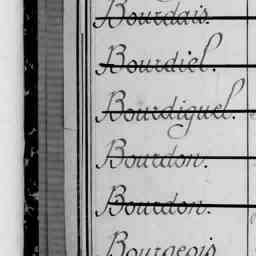 Bourdais.
Bourdiel.
Bourdiquel.
Bourdon.
Bourdon.
Bourgeois